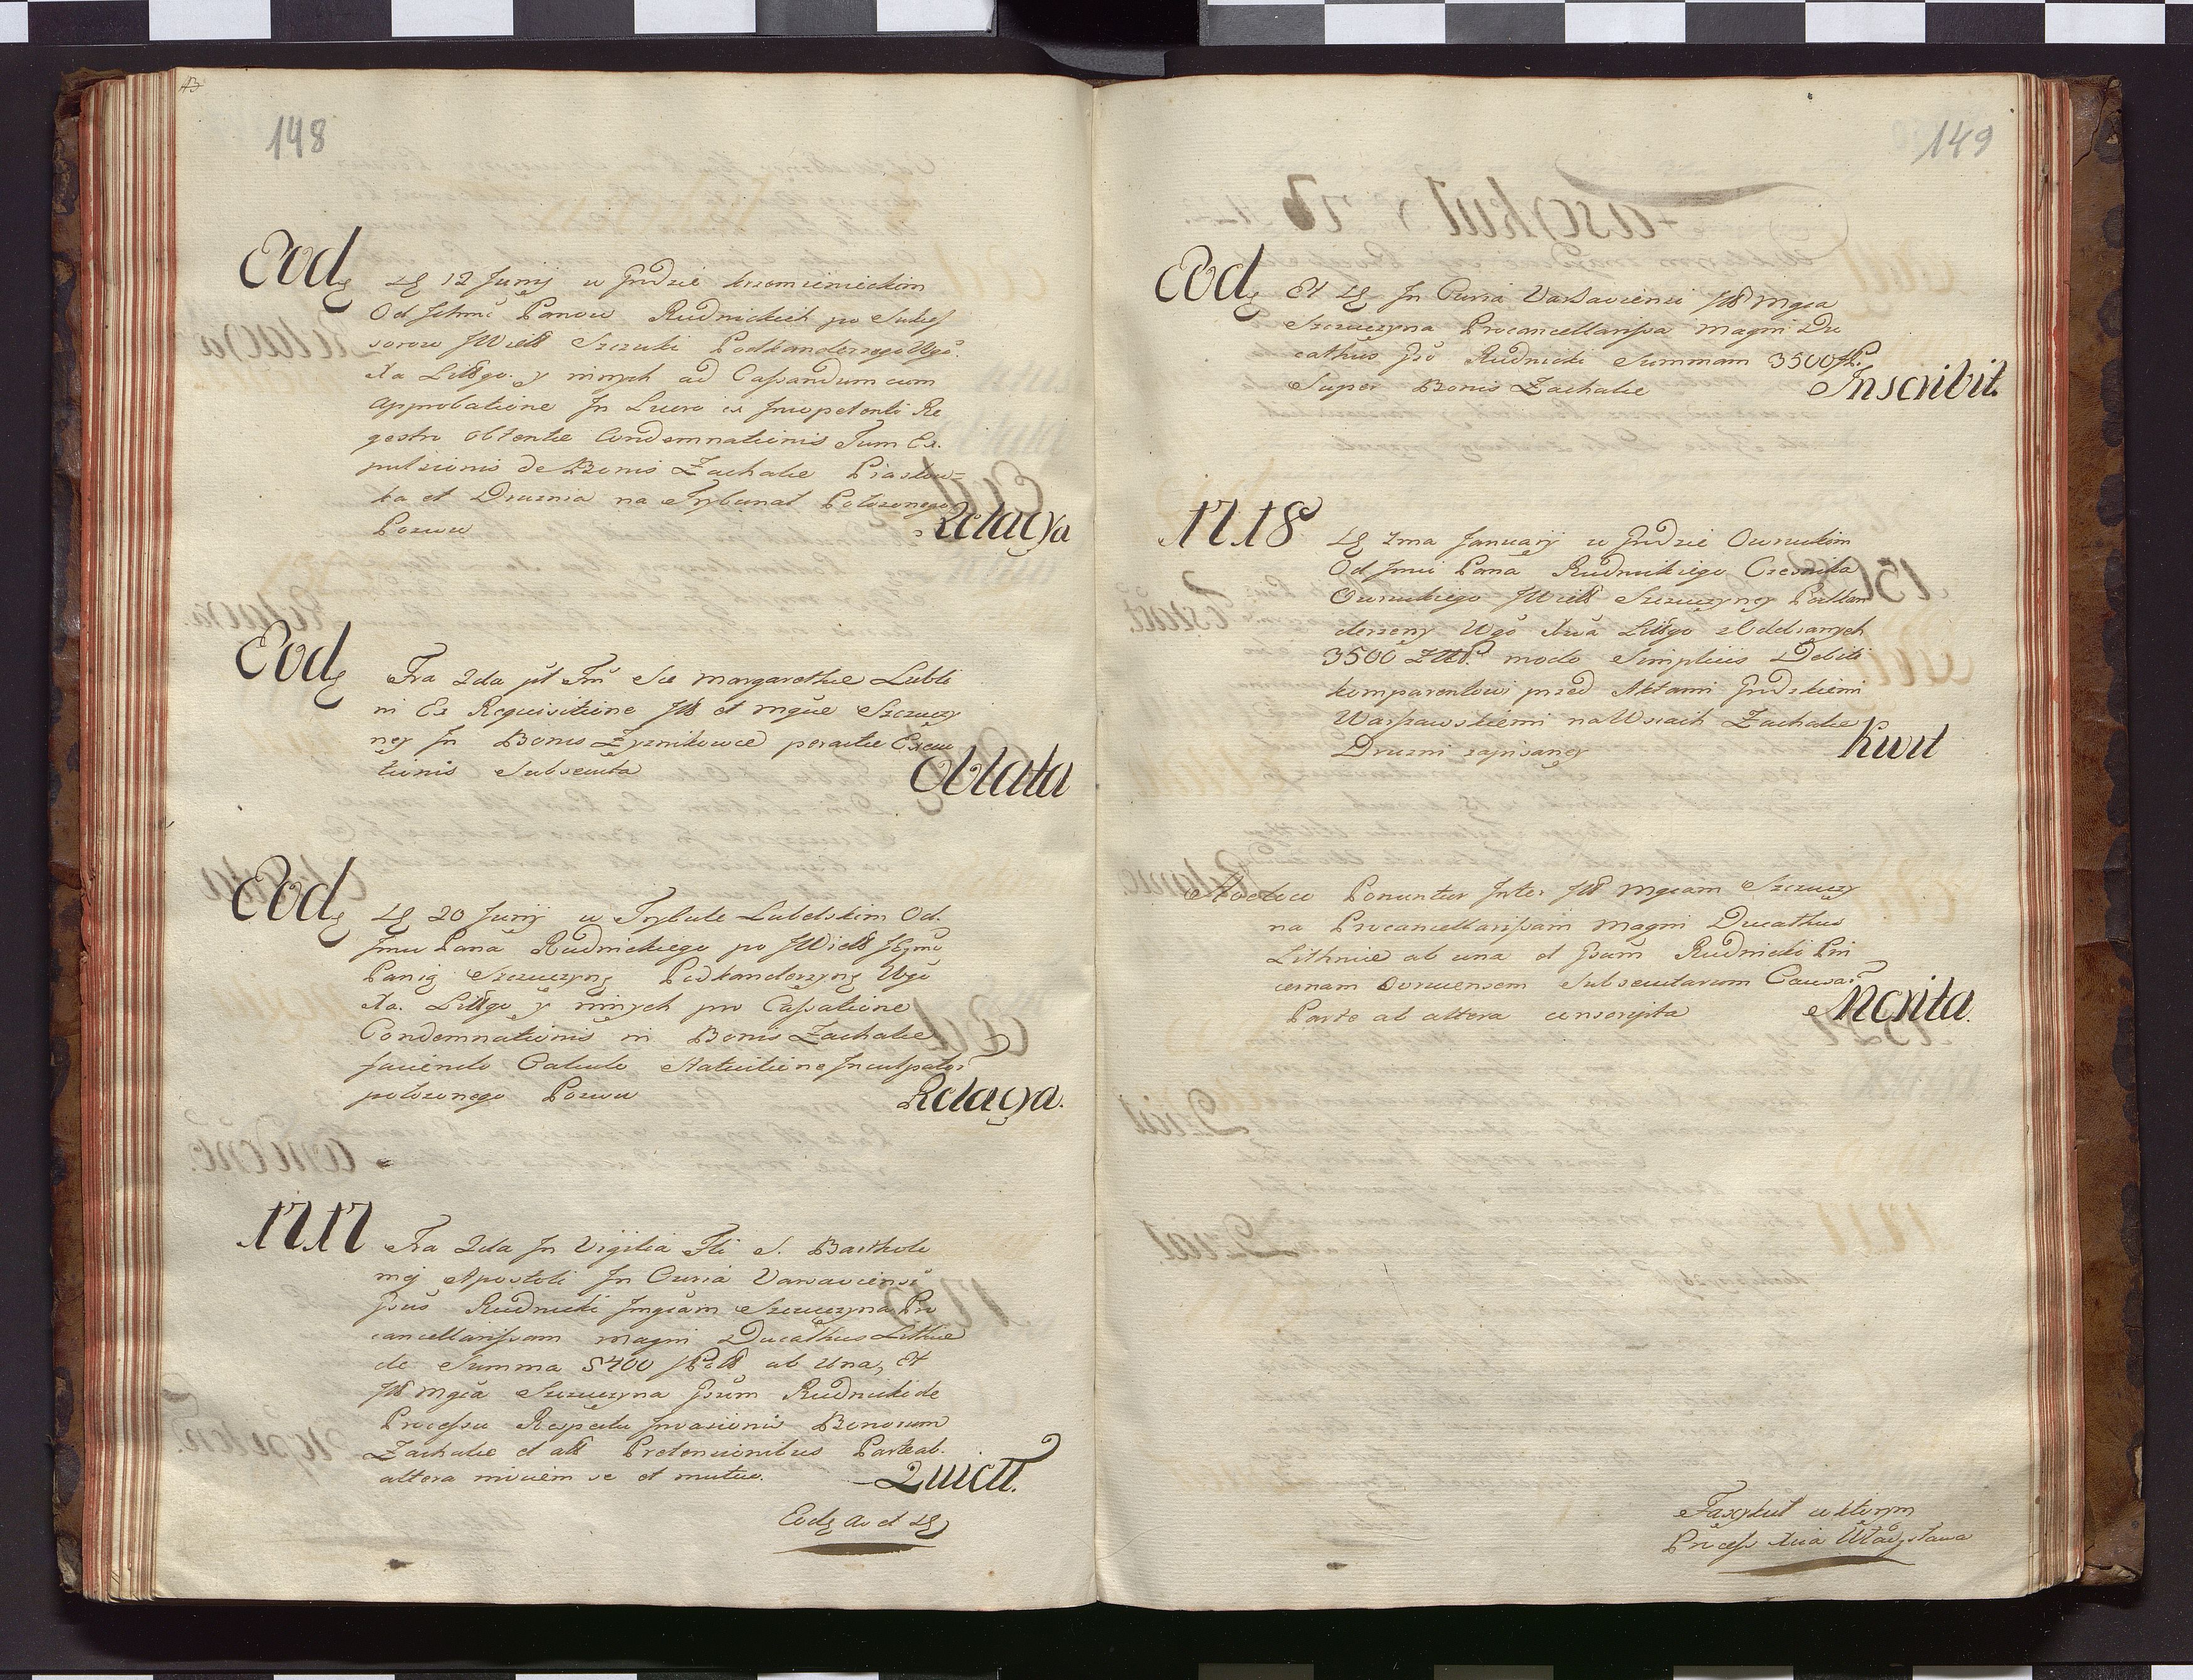 148
Eodę
dę 12 Junij w Grodzie krzemienieckim
Od Ichmć Panow Rudnickich po Sukces
sorow JWielł Szczuki Podkanclerzego Wgõ.
Xa Littgo. y innych ad Cassandum cum
approbatione In Lucro ex Inopetenti Re
gestro obtentæ Condemnationis Tum Ex.
pulsionis de Bonis Zachalie Piastow=
ka et Druznia na Trybunał Położonego
Pozwu
Relacya
Eodę
Fra 2da pŝt Fm̃ Sæ Margarethæ Lubli
ni Ex Requisitione Jłł et mgñæ Szczuczy
ney In Bonis Żyznikowce peractæ Execu
tionis Subsecuta
Oblata
Eodę
dę 20 Junij w Trybale Lubelskim Od.
Jmci Pana Rudnickiego po JWielł JEymć
Panią Szczuczyną Podkanclerzyną Wgõ
Xa. Littgo y innych pro Cassatione
Condemnationis in Bonis Zachalie
faciendo Calculo Statuitione Inculpator
położonego Pozwu
Relacya.
1717
Fra 2da In Vigilia Fti S. Bartholo
mej Apostoli In Curia Varsaviensi
Gsus Rudnicki Jmgñam Szczuczyna Pro
cancellarissam magni Ducathus Lithuæ
de Summa 5400 fPoll ab una, et
Jłł mgña Szczuczyna Gsum Rudnicki de
Processu Respectu Invasionis Bonorum
Zachalie et alł Pretensionibus Parte ab.
altera invicem se et mutuo.
Quiett.
Eodę ao et dę
149
Eodę
et dę In Curia Varsaviensi Jłł mgña
Szczuczyna Procancellarissa magni Du
cathus Gso Rudnicki Summam 3500 fP.
Super Bonis Zachalie
Inscribit.
1718
dę 1ma January w Grodzie Owruckim
Od Jmci Pana Rudnickiego Czesnika
Owruckiego JWielł Szczuczyney Podkan
clerzeny Wgõ Xwa Littgo z Oddanych
3500 Złł P. modo Simplicis Debiti
komparentowi przed Aktami Grodzkiemi
Warszawskiemi na Wsiach Zachalie
Druzni zapisaney
Kwit
Hocloco Ponuntur Inter Jłł mgñam Szczuczy
na Procancellarissam magni Ducathus
Lithuiæ ab una et Gsum Rudnicki Pin
cernam Ovrucensem Subsecutarum Causar
Parte ab altera conscripta
Merita.
Faxykuł w ktorym
Process Xcia Władysława